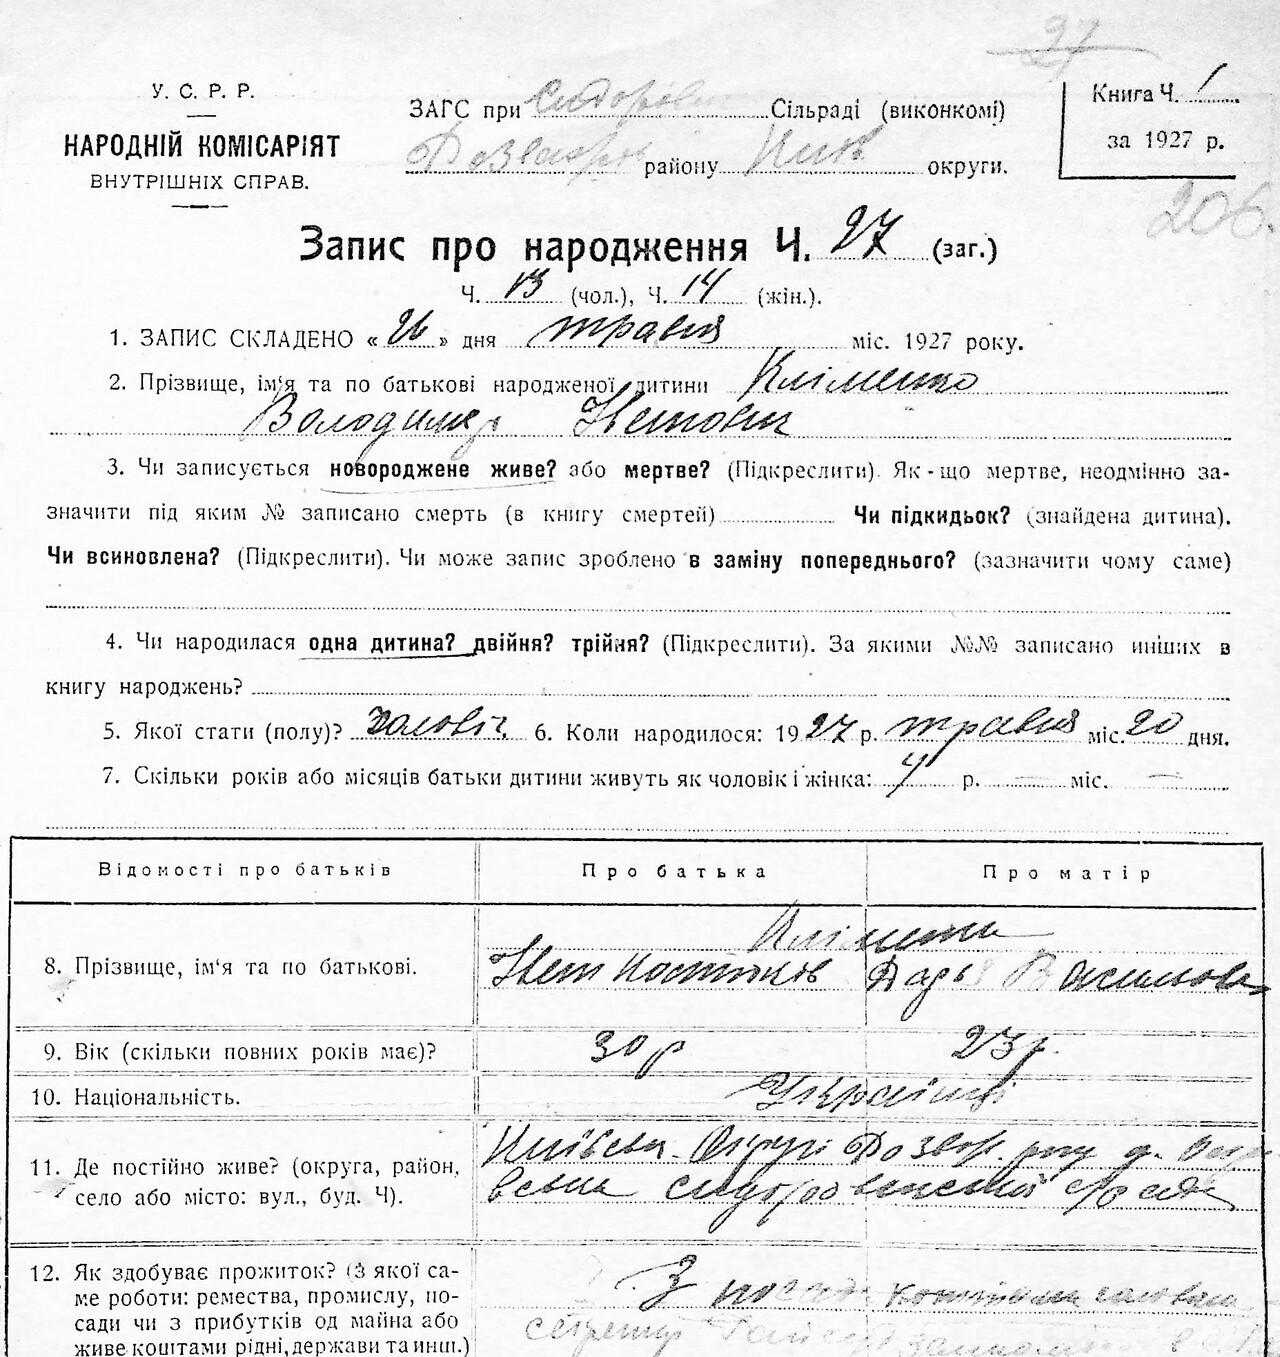 27
У. С. Р. Р.
НАРОДНІЙ КОМІСАРІЯТ
ВНУТРІШНІХ СПРАВ.
ЗАГС при Сидорів Сільраді (виконкомі)
району Київ округи.
Книга Ч. 1
за 1927 р.
206.
Запис про народження Ч. 27 (заг.)
Ч. 13 (чол.), Ч. 14 (жін.).
1. ЗАПИС СКЛАДЕНО « 26 » дня травня міс. 1927 року.
2. Прізвище, ім'я та по батькові народженої дитини Кліменко
Володимир
3. Чи записується новороджене живе? або мертве? (Підкреслити). Як-що мертве, неодмінно за-
значити під яким № записано смерть (в книгу смертей) Чи підкидьок? (знайдена дитина).
Чи всиновлена? (Підкреслити). Чи може запис зроблено в заміну попереднього? (зазначити чому саме)
4. Чи народилася одна дитина? двійня? трійня? (Підкреслити). За якими №№ записано инших в
книгу народжень?
5. Якої стати (полу)? Чоловіч. 6. Коли народилося: 1927 р. травня міс. 20 дня.
7. Скільки років або місяців батьки дитини живуть як чоловік і жінка: 4 р. — міс. —
Відомості про батьків Про батька Про матір
8. Прізвище, ім'я та по батькові.
Дарья Василівна
9. Вік (скільки повних років має)? 30 р 23 р.
10. Національність. Українці
11. Де постійно живе? (округа, район,
село або місто: вул., буд. Ч).
Київська Округи
12. Як здобуває прожиток? (З якої са-
ме роботи: ремества, промислу, по-
сади чи з прибутків од майна або
живе коштами рідні, держави та инш.)
З посади